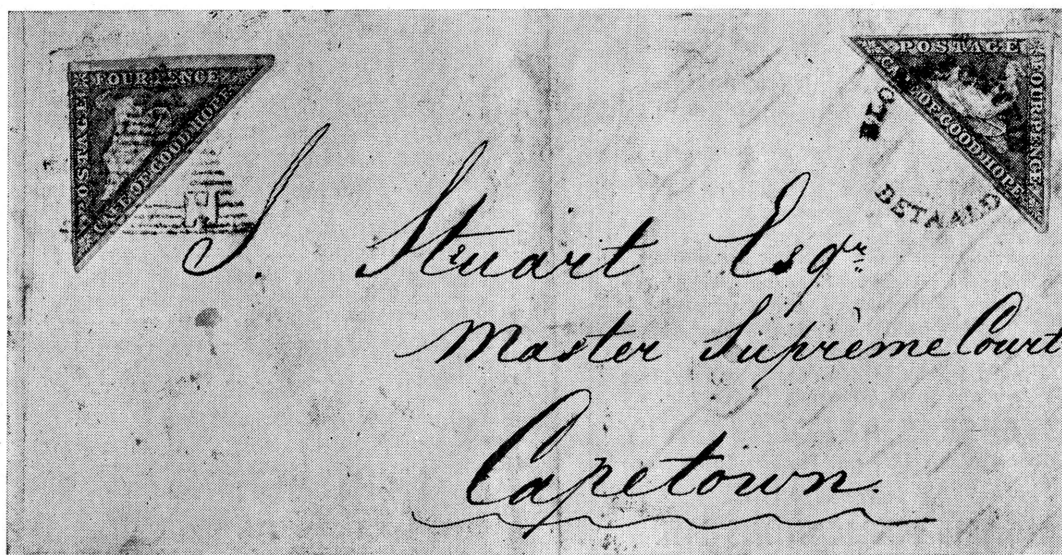 FOUR PENCE
POSTAGE
CAPE OF GOOD HOPE
POSTAGE
FOUR PENCE
CAPE OF GOOD HOPE
BLO
BETAALD
J. Stuart Esqr.
Master Suprème Court
Capetown.